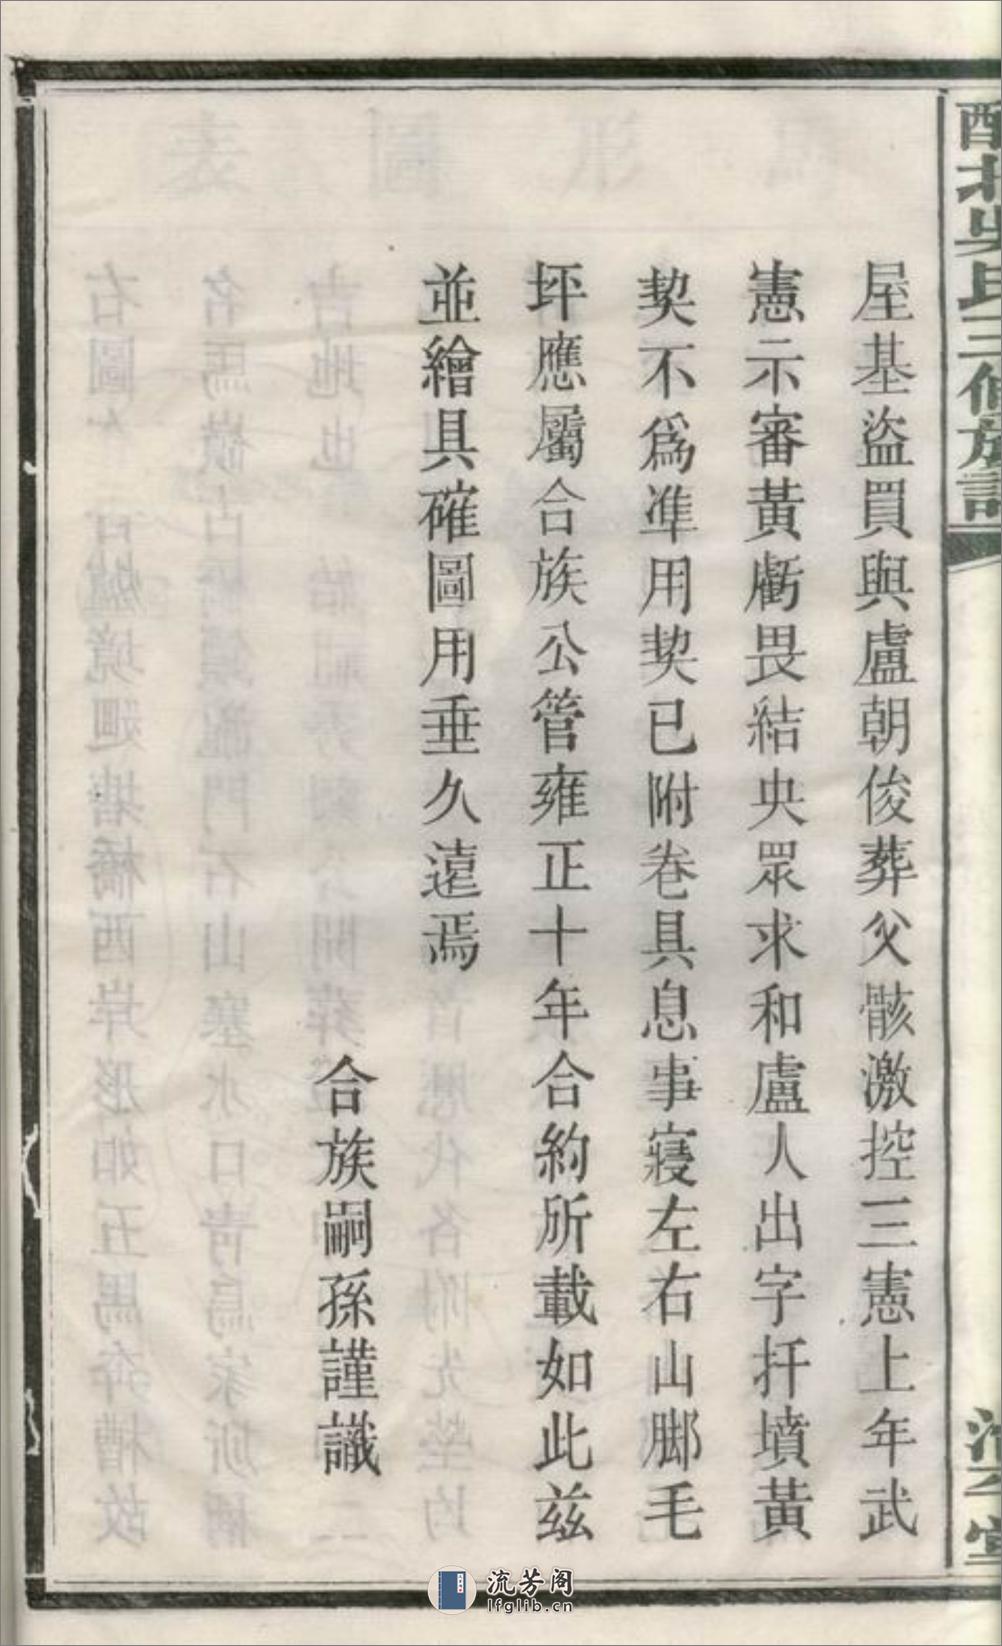 屋基盜買與盧朝俊葬父骸激控三憲上年武
憲示審黃虧畏結央眾求和盧人出字扦墳黃
契不爲准用契已附卷具息事寢左右山脚毛
坪應屬合族公管雍正十年合約所載如此兹
並繪具確圖用垂久遠焉
合族嗣孫謹識
北吳氏三修族譜
堂
流芳阁
lfglib.cn